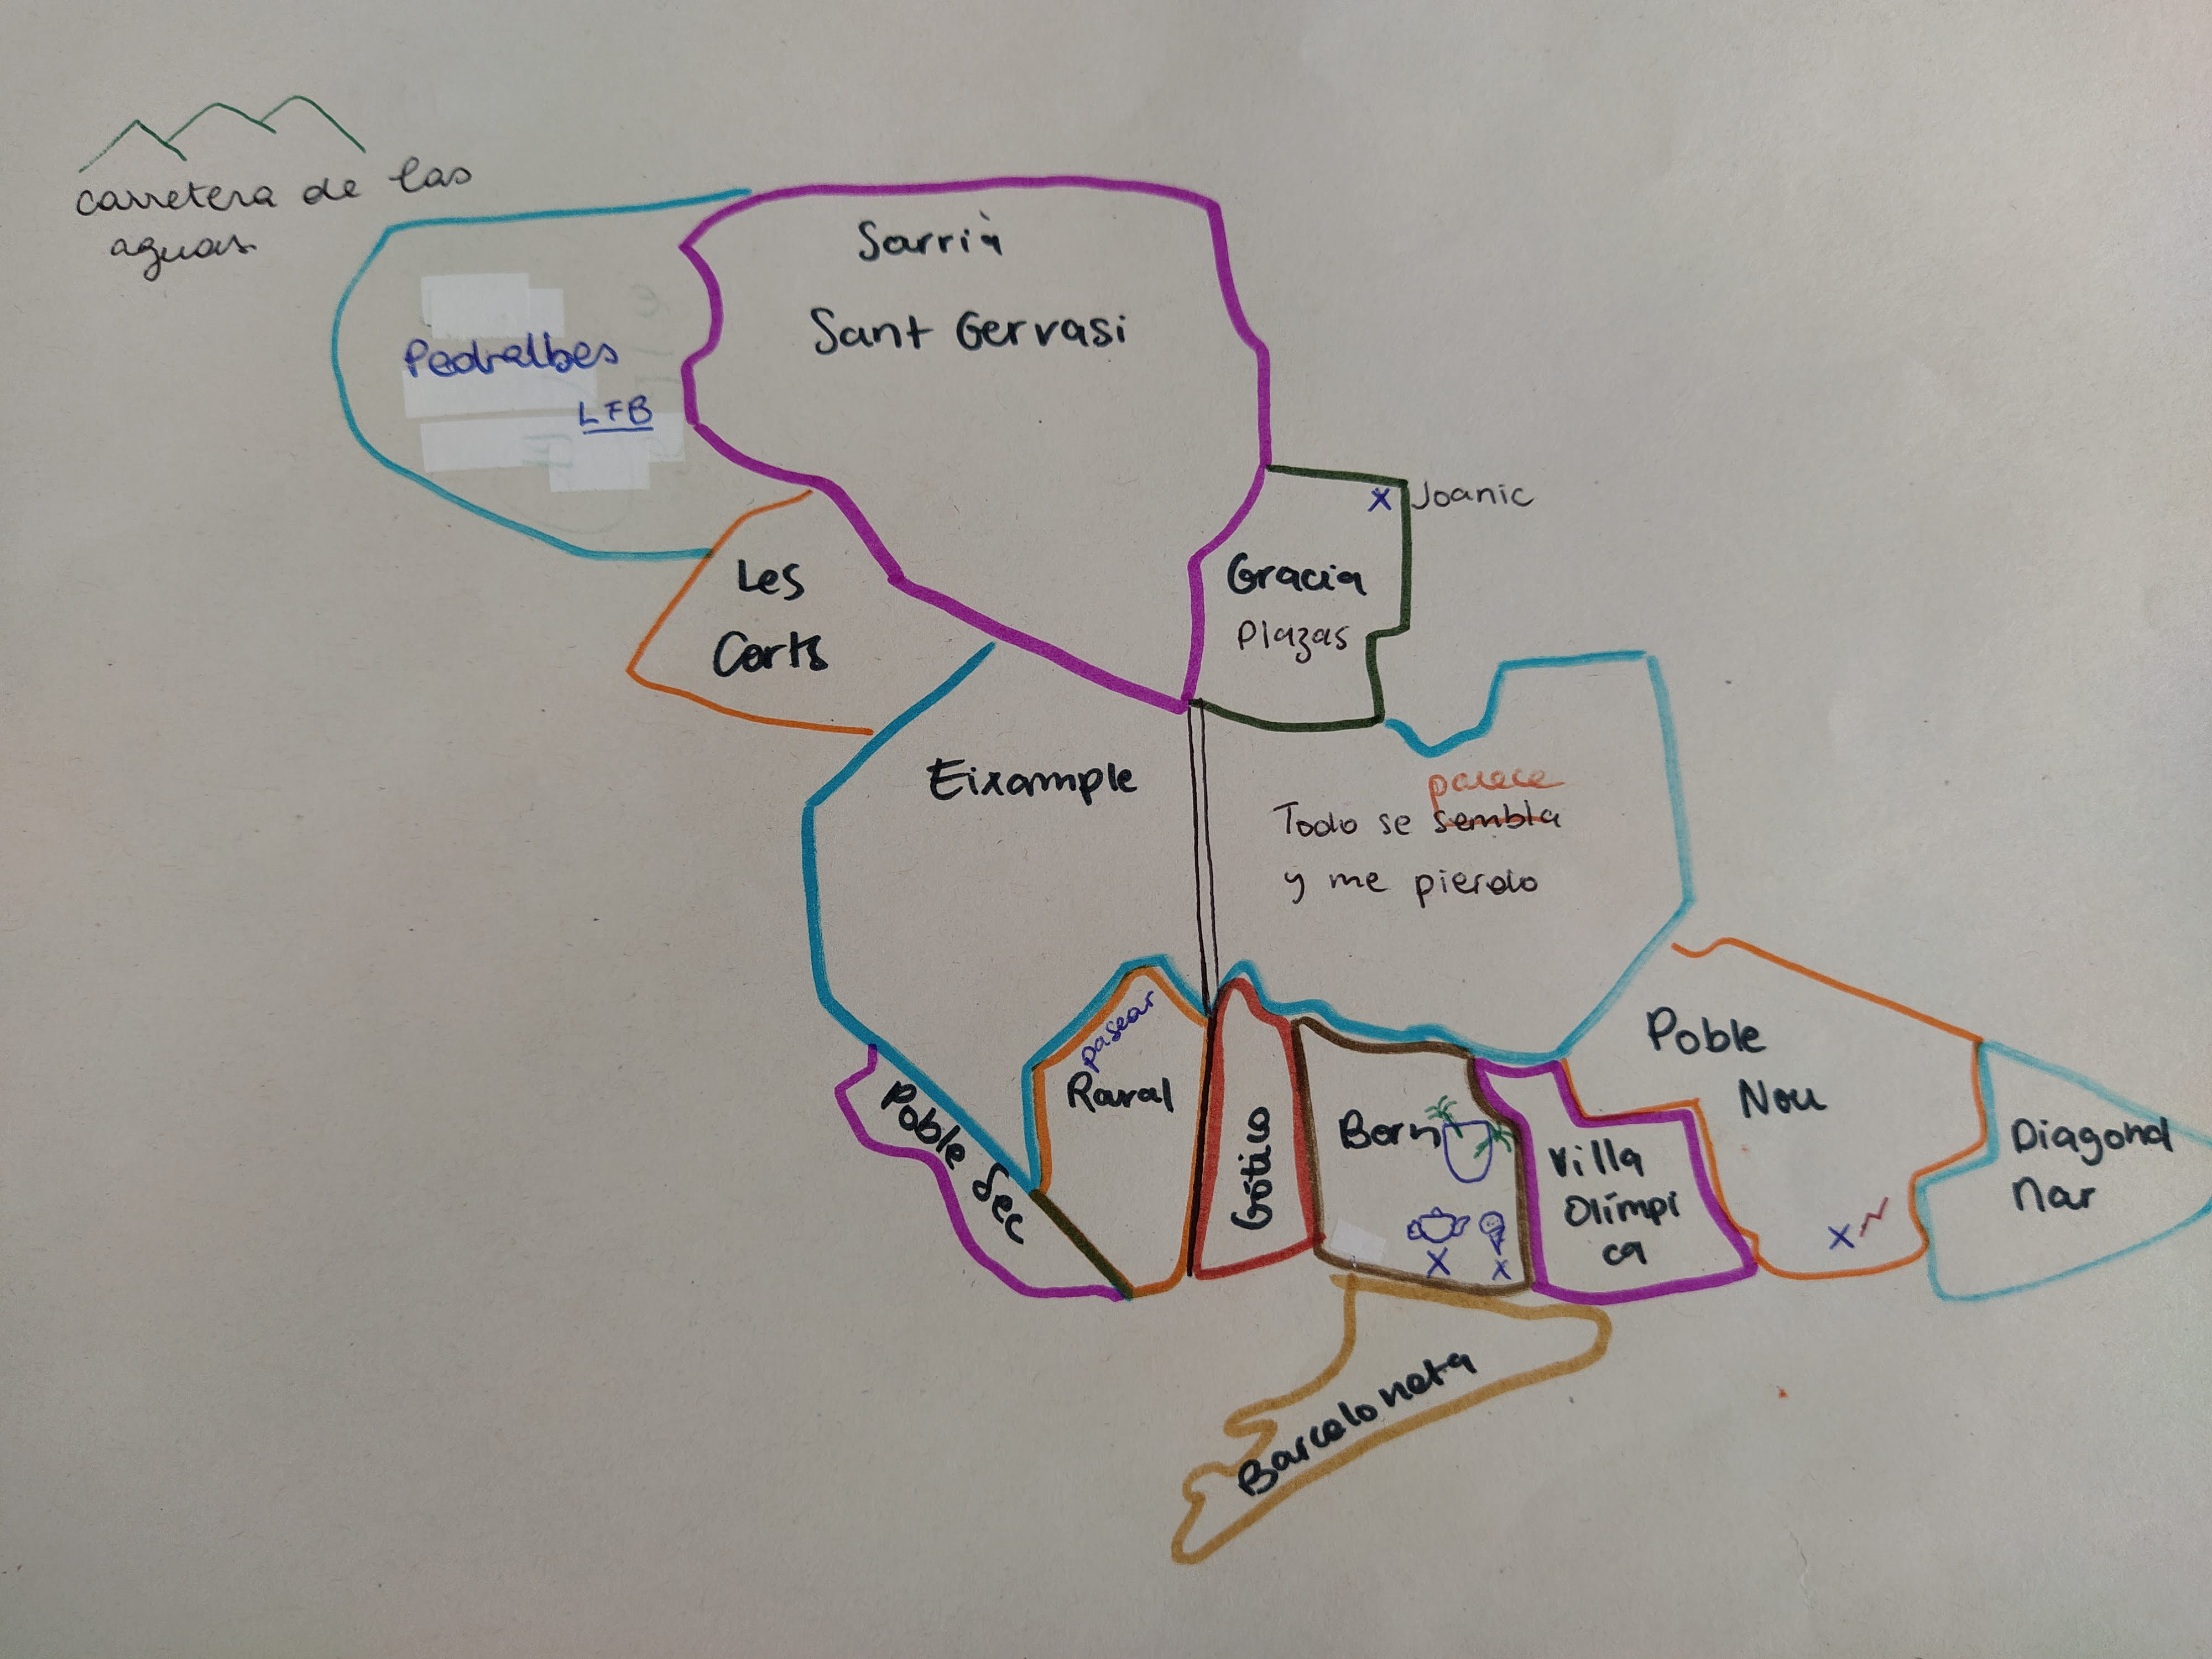 carretera de las
aguas
Sarrià
Sant Gervasi
Pedralbes
LFB
x Joanic
Les
Corts
Gracia
Plazas
Eixample
parece
Todo se sembla
y me pierdo
pasear
Raval
Poble Sec
Gótico
Born
x
x
Villa
Olímpi
ca
Poble
Nou
x
Diagonal
Mar
Barceloneta